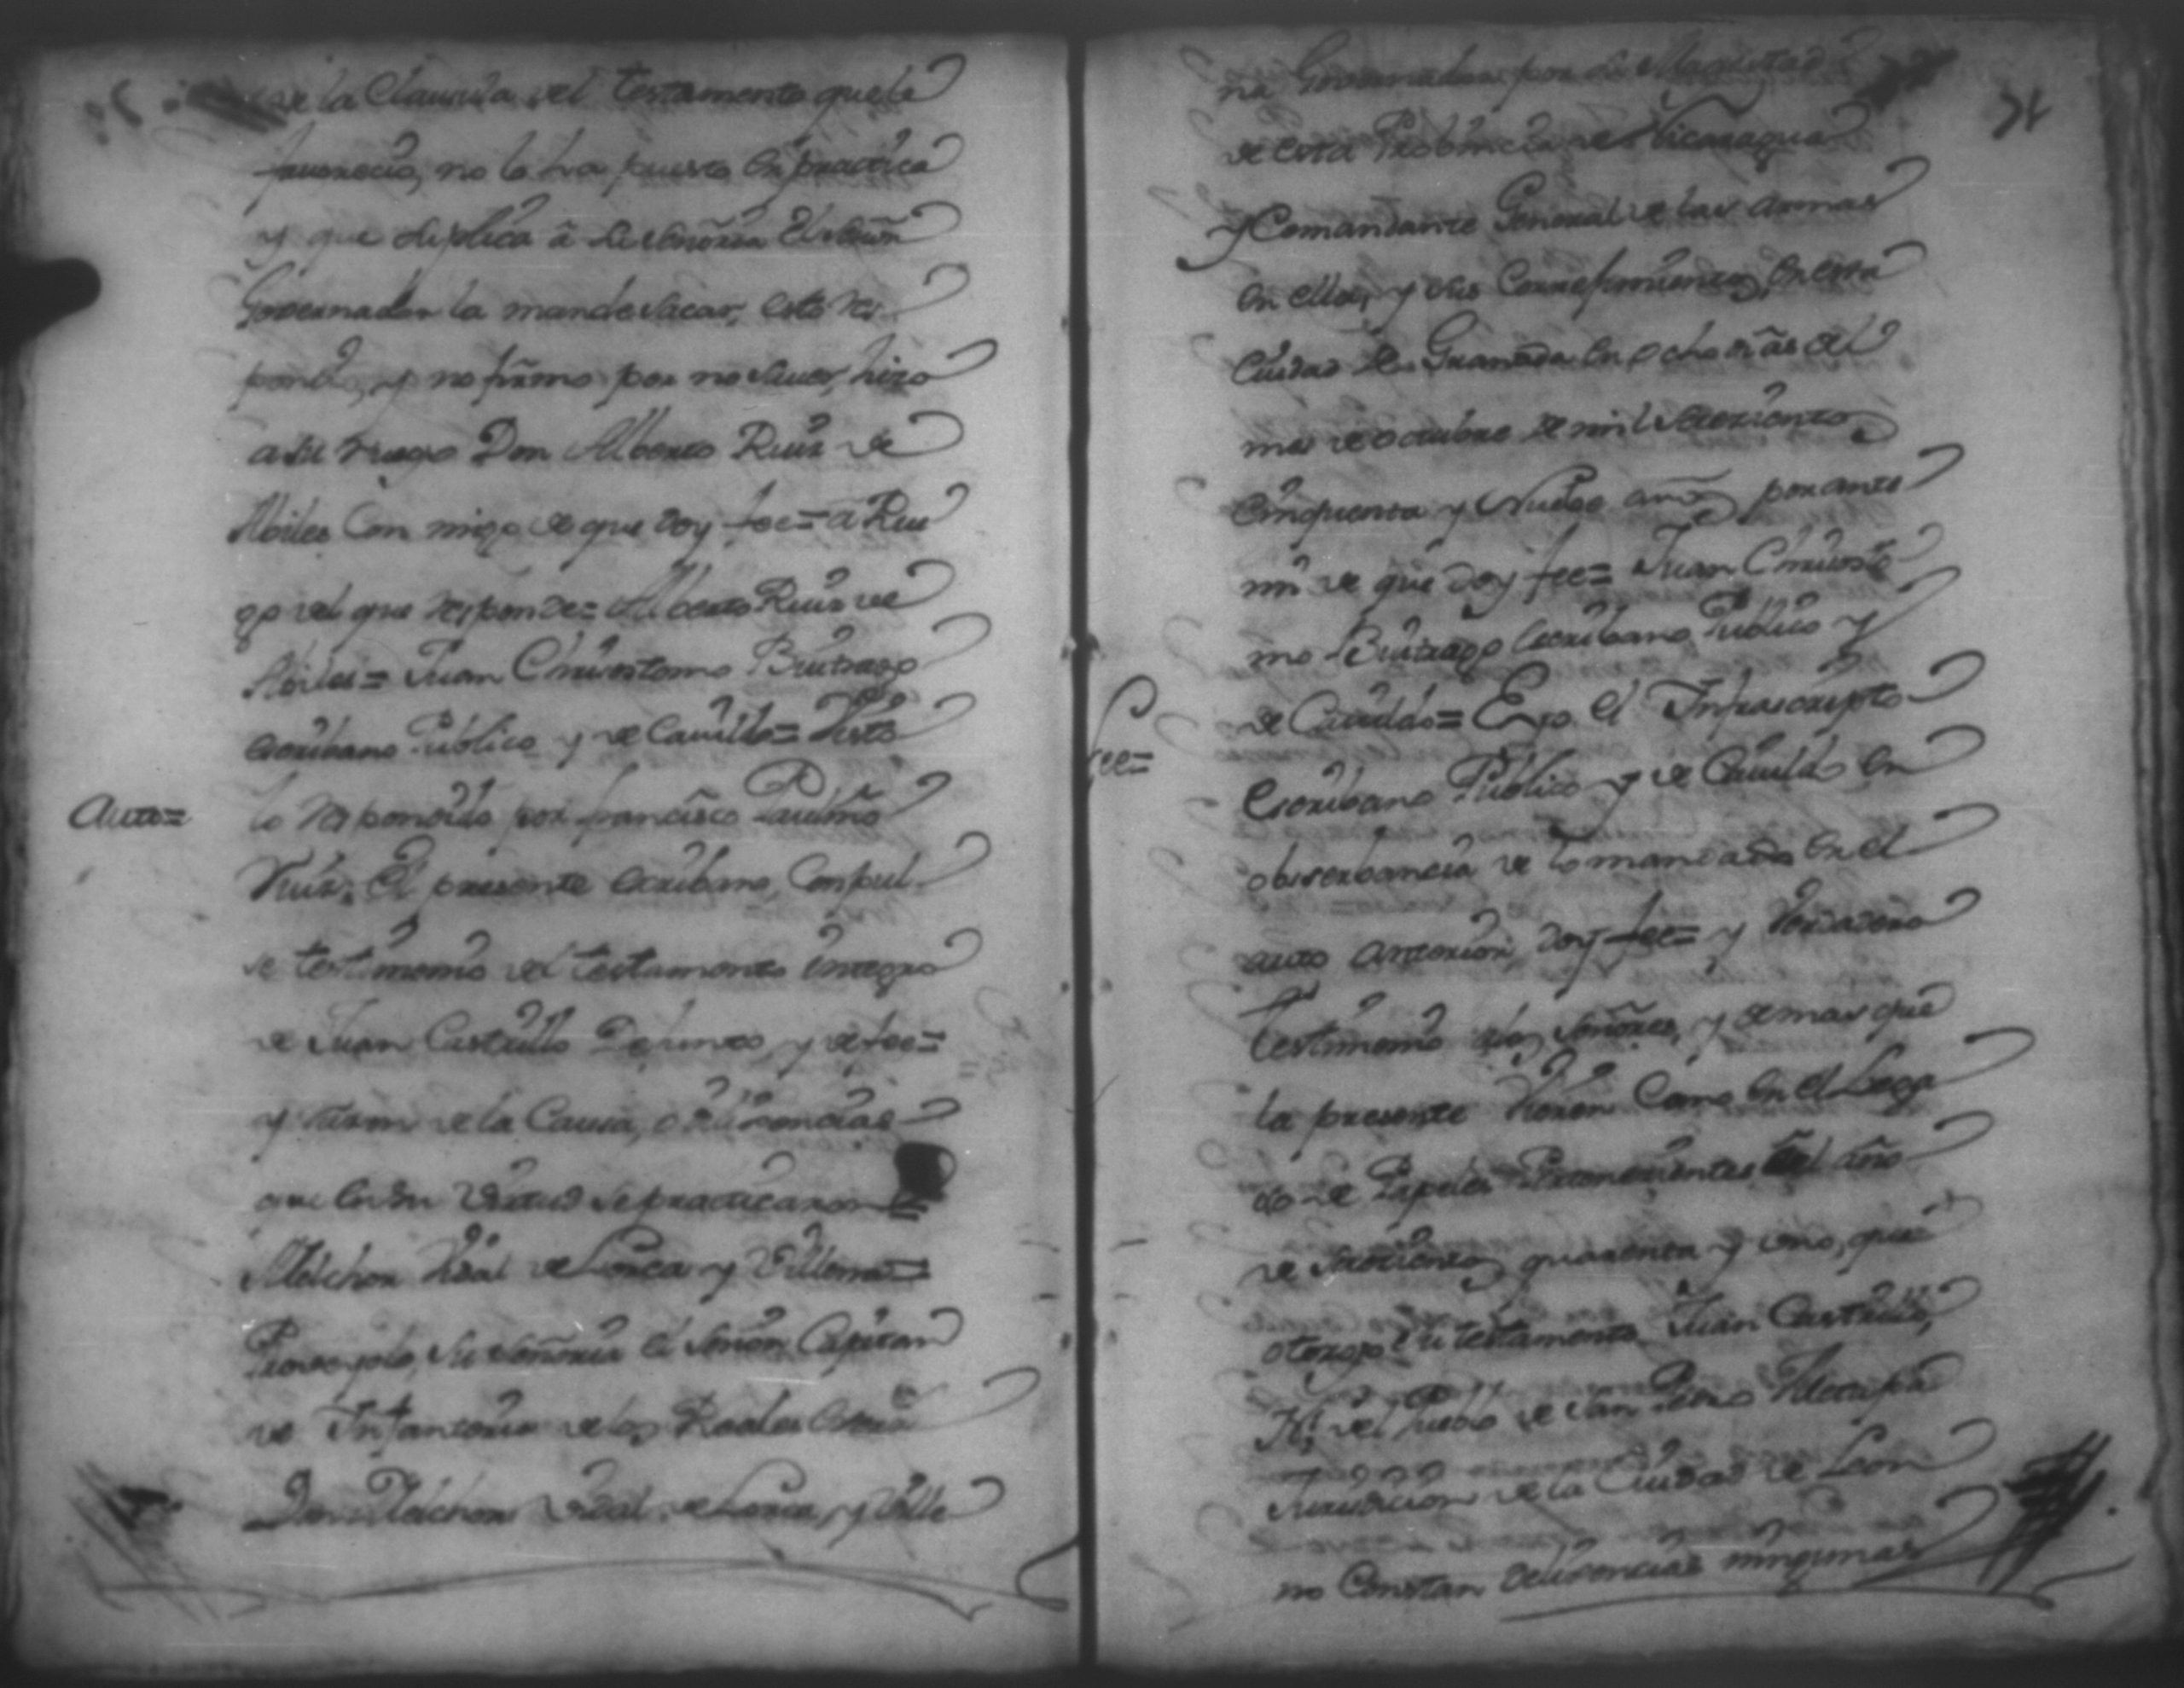 de la Clausula del testamento que le
favorecio, no lo ha puesto en practica
y que suplica â su señoria El señor
Governador la mande sacar, esto res
pondio, y no firmo por no saver, hizo
a su ruego Don Alberto Ruiz de
Abiles Con migo de que doy fee= a Rue
go del que responde= Alberto Ruiz de
Abiles= Juan Chrisostomo Buitrago
escribano Publico y de Cavildo= Visto
Auto=
lo respondido por francisco Paulino
Ruiz, El presente escribano, Conpul
se testimonio del testamento integro
de Juan Castrillo Defunto, y de fee=
y razon de la Causa, o dilixencias
que en su virtud se practicaron=
Melchor Vidal de Lorca y Villena=
Proveyolo, su señoria el señor Capitan
de Infanteria de los Reales
Don Melchor Vidal de Lorca, y Ville
74
na Governador por su Magestad
de esta Probincia de Nicaragua
y Comandante General de las armas
en ella, y sus Corregimientos, en esta
Ciudad de Granada en ocho dias del
mes de octubre de mil setecientos
Cinquenta y Nuebe años por ante
mi de que doy fee= Juan Chrisosto
mo Buitrago Escribano Publico y
de Cavildo= Eyo el Infrascripto
fee=
Escribano Publico y de Cavildo en
obserbancia de lo mandado en el
auto anterior, doy fee= y verdadero
testimonio a los señores, y demas que
la presente vieren Como en el Lega
jo de Papeles Pertenecientes del año
de setecientos quarenta y uno, que
otorgo su testamento Juan Castrillo,
del Pueblo de San Pedro Metapa
Jurisdicion de la Ciudad de Leon
no Constan delixencias ningunas